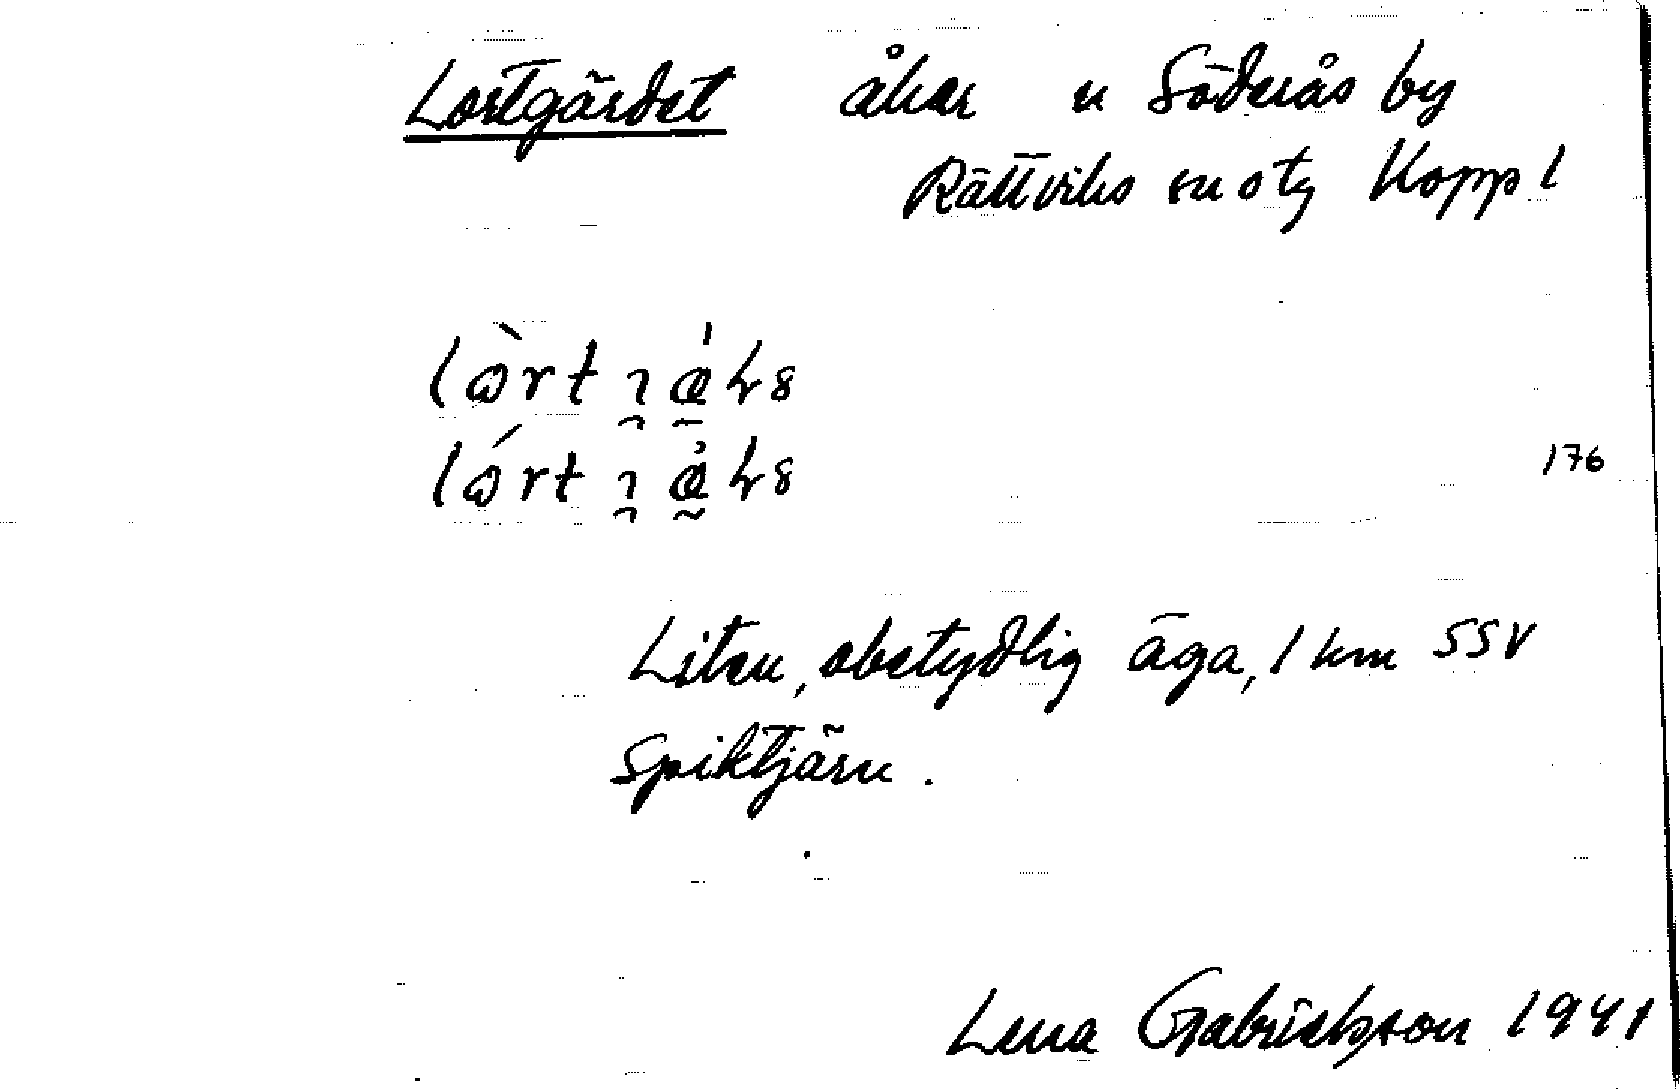 Lortgärdet åker n Söderås by
Rättviks sn o tg Kopp l
176
Liten, obetydlig äga, 1 km SSV
Spiktjärn.
Lena Gabrielsson 1941